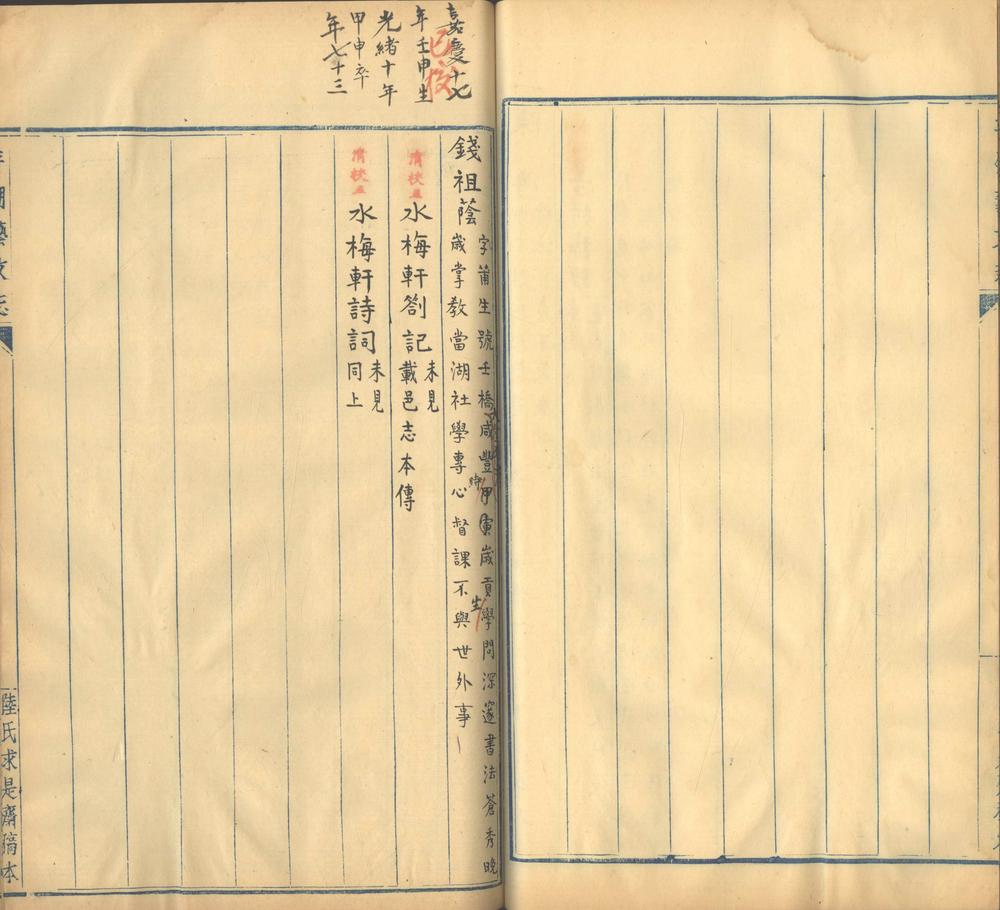 嘉慶十七
年壬申生
光緒十年
甲申卒
年七十三
已校
錢祖蔭
字蒲生號壬橋咸豐甲寅歲貢學問深邃書法蒼秀晚
生
歲掌教當湖社學專心督課不與世外事
水梅軒劄記
未見
載邑志本傳
水梅軒詩詞
未見
同上
湖藝文志
陸氏求是齋稿本